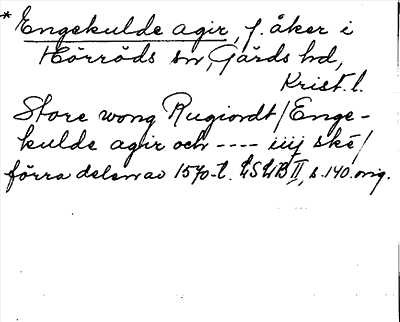 * Engekulde agir, f. åker i
Hörröds sn, Gärds hd,
Krist. l.
Store wong Rugiordt/Enge-
kulde agir och ---- iiij ske/
förra delen av 1570-t. LSLB II, s. 140. orig.